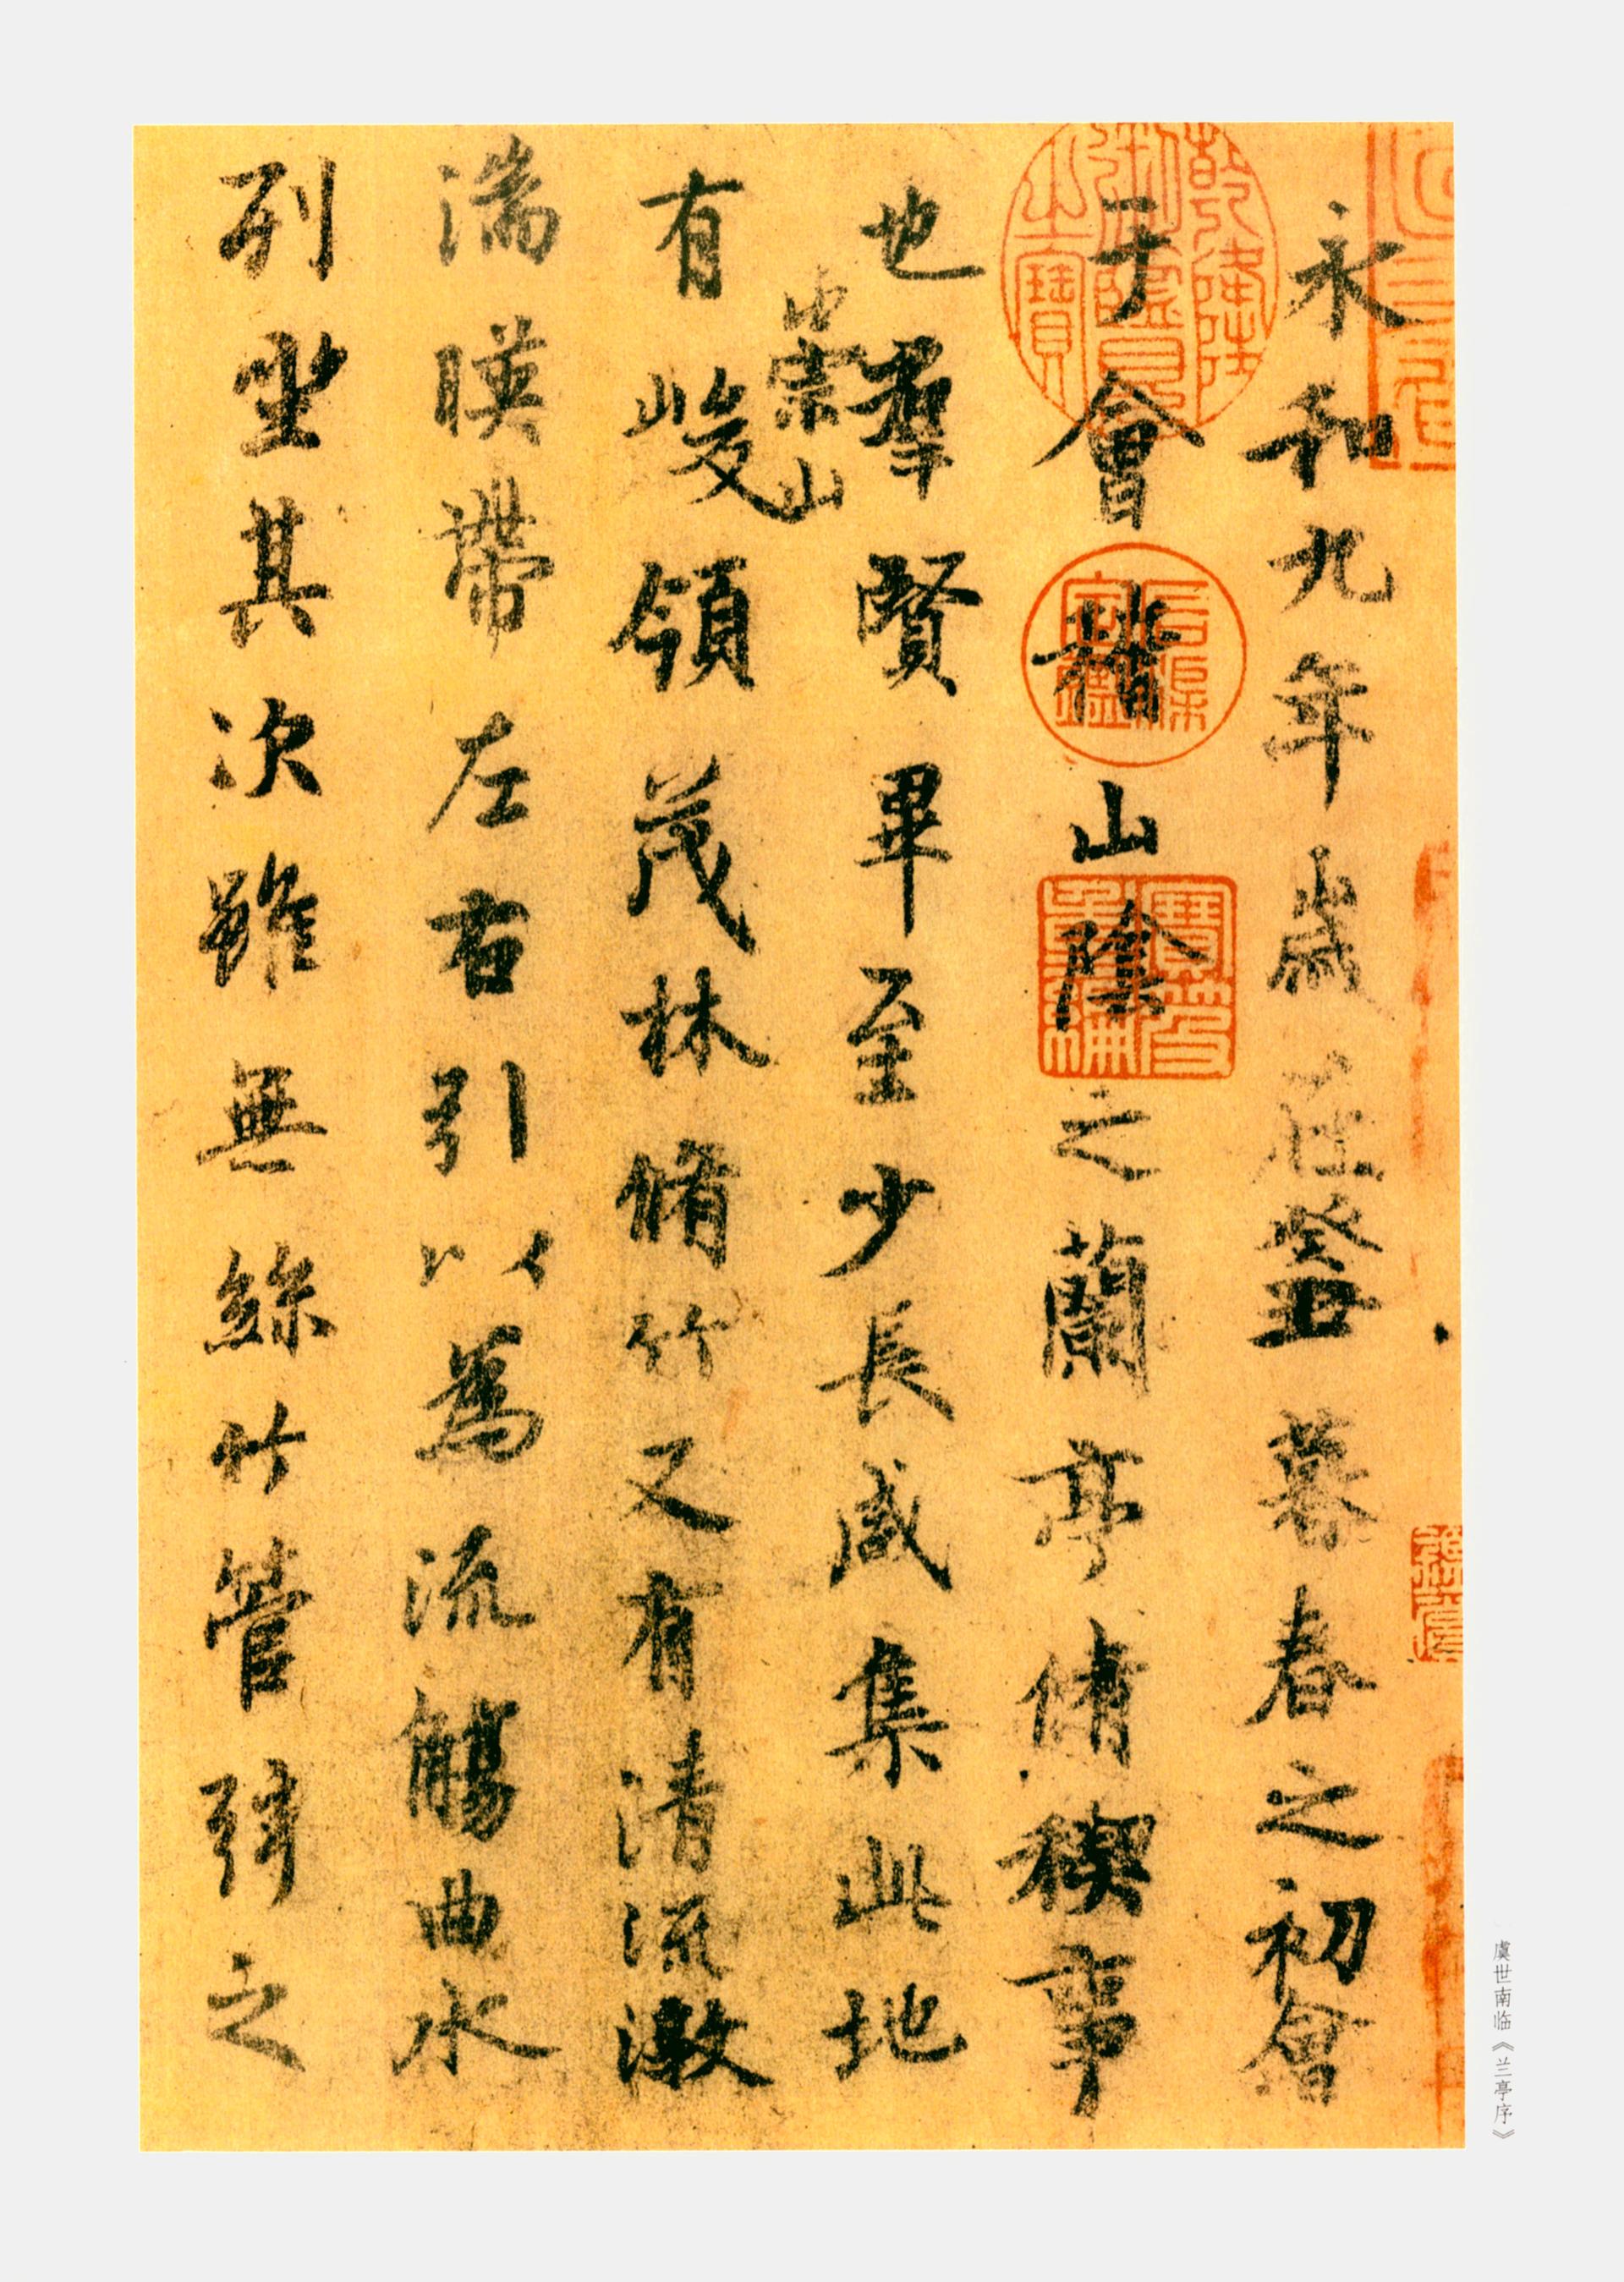 永和九年歲在癸丑暮春之初會
于會稽山陰之蘭亭脩稧事
也羣賢畢至少長咸集此地
有崇山峻領茂林脩竹又有清流激
湍暎帶左右引以為流觴曲水
列坐其次雖無絲竹管弦之
乾隆御覽之寶
石渠寶鑑
寶笈重編
虞世南临《兰亭序》